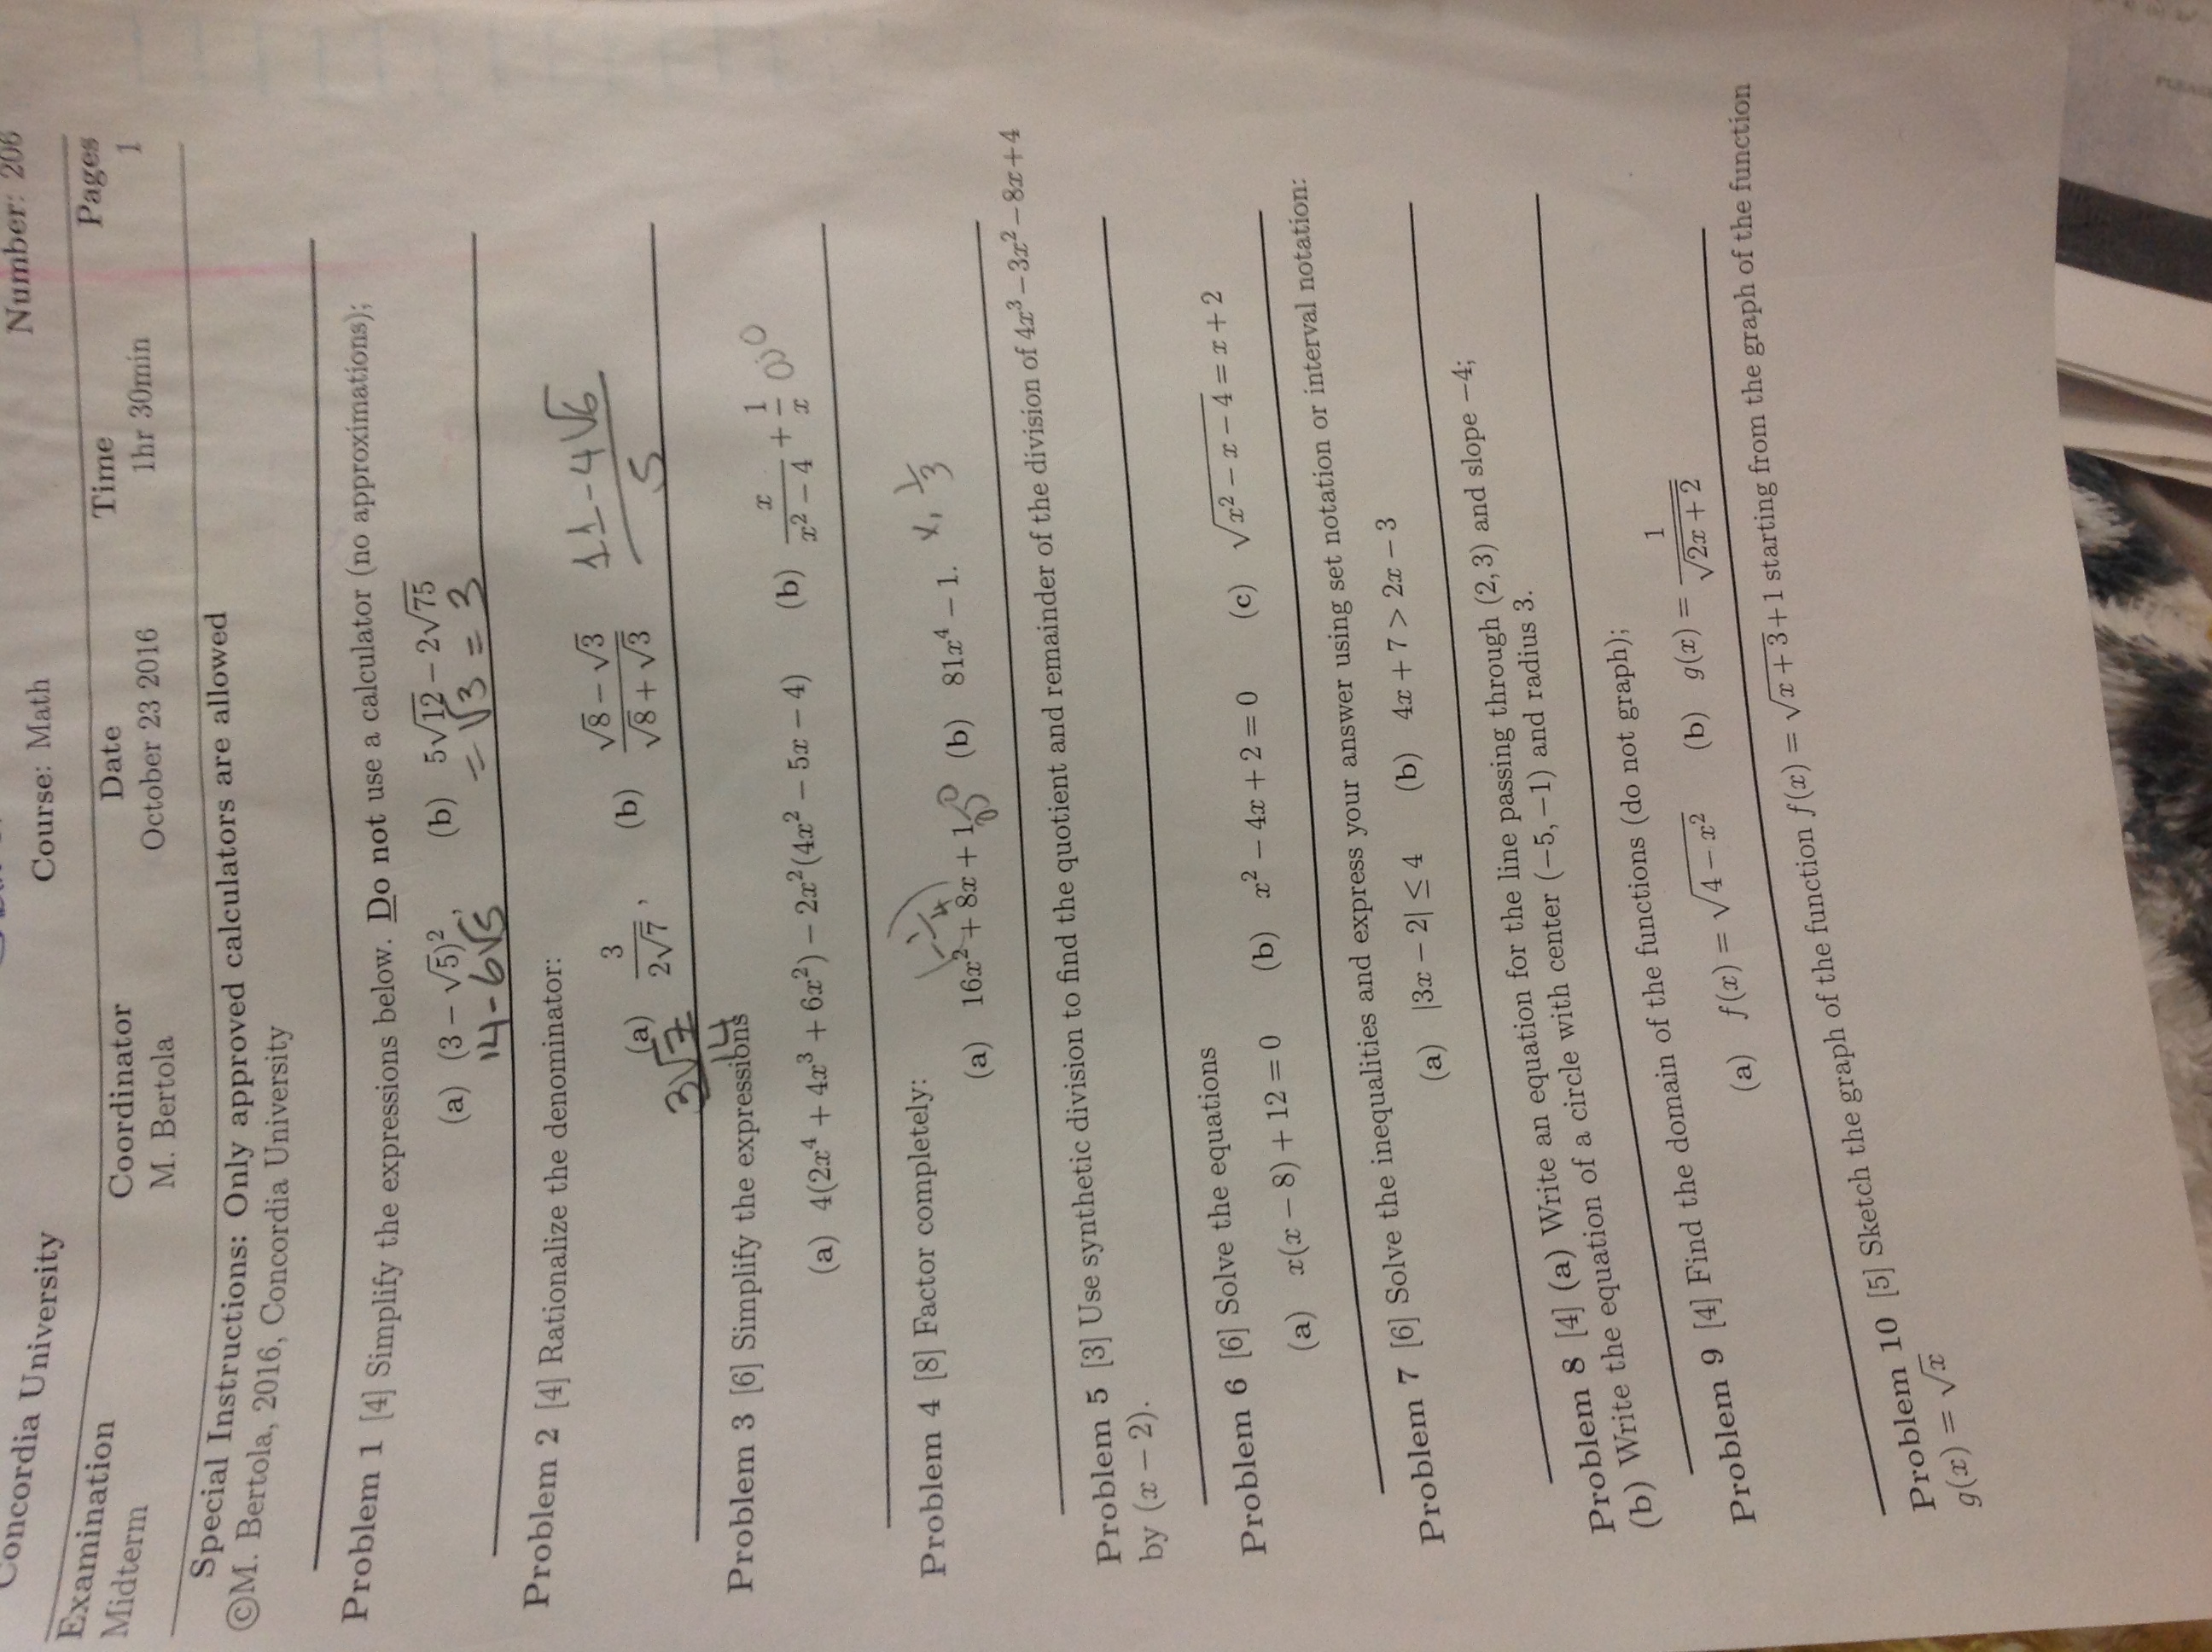 Concordia University
Course: Math Number: 206
Examination Coordinator Date Time Pages
Midterm M. Bertola October 23 2016 1hr 30min 1
Special Instructions: Only approved calculators are allowed
©M. Bertola, 2016, Concordia University
Problem 1 [4] Simplify the expressions below. Do not use a calculator (no approximations);
(a) (3 − √5)², (b) 5√12 − 2√75
14-6√5 = √3 = 3
Problem 2 [4] Rationalize the denominator:
(a) 3/(2√7), (b) (√8 − √3)/(√8 + √3) (11-4√6)/5
3√7/14
Problem 3 [6] Simplify the expressions
(a) 4(2x⁴ + 4x³ + 6x²) − 2x²(4x² − 5x − 4) (b) x/(x² − 4) + 1/x
Problem 4 [8] Factor completely:
(-1/4) x, 1/3
(a) 16x² + 8x + 1 (b) 81x⁴ − 1.
Problem 5 [3] Use synthetic division to find the quotient and remainder of the division of 4x³−3x²−8x+4
by (x − 2).
Problem 6 [6] Solve the equations
(a) x(x − 8) + 12 = 0 (b) x² − 4x + 2 = 0 (c) √(x² − x − 4) = x + 2
Problem 7 [6] Solve the inequalities and express your answer using set notation or interval notation:
(a) |3x − 2| ≤ 4 (b) 4x + 7 > 2x − 3
Problem 8 [4] (a) Write an equation for the line passing through (2, 3) and slope −4;
(b) Write the equation of a circle with center (−5, −1) and radius 3.
Problem 9 [4] Find the domain of the functions (do not graph);
(a) f(x) = √(4 − x²) (b) g(x) = 1/√(2x + 2)
Problem 10 [5] Sketch the graph of the function f(x) = √(x + 3) + 1 starting from the graph of the function
g(x) = √x